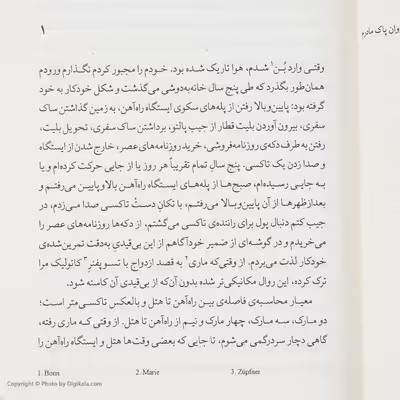 وان پاک مادرم
۱
وقتی وارد بُن۱ شدم، هوا تاریک شده بود. خودم را مجبور کردم نگذارم ورودم
همان‌طور بگذرد که طی پنج سال خانه‌به‌دوشی می‌گذشت و شکل خودکار به خود
گرفته بود: پایین‌وبالا رفتن از پله‌های سکوی ایستگاه راه‌آهن، به زمین گذاشتن ساک
سفری، بیرون آوردن بلیت قطار از جیب پالتو، برداشتن ساک سفری، تحویل بلیت،
رفتن به طرف دکه‌ی روزنامه‌فروشی، خرید روزنامه‌های عصر، خارج شدن از ایستگاه
و صدا زدن یک تاکسی. پنج سالِ تمام تقریباً هر روز یا از جایی حرکت کرده‌ام و یا
به جایی رسیده‌ام، صبح‌ها از پله‌های ایستگاه راه‌آهن بالاوپایین می‌رفتم و
بعدازظهرها از آن پایین‌وبالا می‌رفتم، با تکانِ دست تاکسی صدا می‌زدم، در
جیب کتم دنبال پول برای راننده‌ی تاکسی می‌گشتم، از دکه‌ها روزنامه‌های عصر را
می‌خریدم و در گوشه‌ای از ضمیر خودآگاهم از این بی‌قیدیِ به‌دقت تمرین‌شده‌ی
خودکار لذت می‌بردم. از وقتی‌که ماری۲ به قصد ازدواج با تسوپفنرِ۳ کاتولیک مرا
ترک کرده، این روال مکانیکی‌تر شده بدون آن‌که از بی‌قیدی آن کاسته شود.
معیار محاسبه‌ی فاصله‌ی بین راه‌آهن تا هتل و بالعکس تاکسی‌متر است؛
دو مارک، سه مارک، چهار مارک و نیم از راه‌آهن تا هتل. از وقتی که ماری رفته،
گاهی دچار سردرگمی می‌شوم، تا جایی که بعضی وقت‌ها هتل و ایستگاه راه‌آهن را
1. Bonn 2. Marie 3. Züpfner
Copyright © Photo by Digikala.com